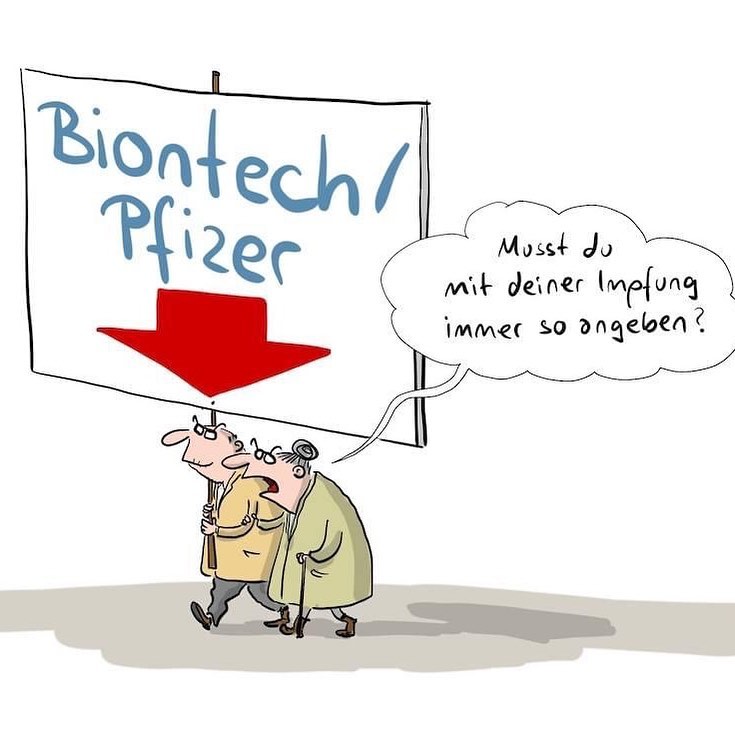 Biontech/
Pfizer
Musst du
mit deiner Impfung
immer so angeben?